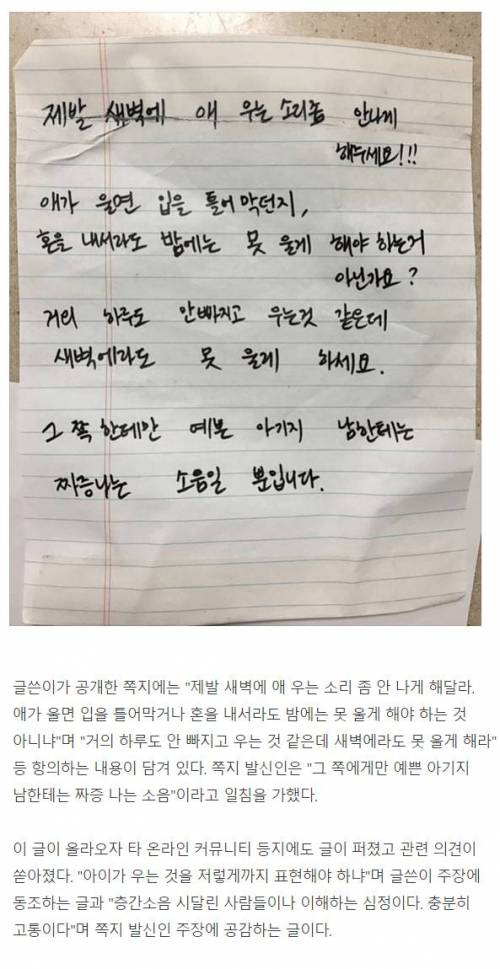 제발 새벽에 애 우는 소리좀 안나게
해주세요!!!
애가 울면 입을 틀어막던지,
혼을 내서라도 밤에는 못 울게 해야 하는거
아닌가요?
거의 하루도 안빠지고 우는것 같은데
새벽에라도 못 울게 하세요.
그 쪽 한테만 예쁜 아기지 남한테는
짜증나는 소음일 뿐입니다.
글쓴이가 공개한 쪽지에는 "제발 새벽에 애 우는 소리 좀 안 나게 해달라.
애가 울면 입을 틀어막거나 혼을 내서라도 밤에는 못 울게 해야 하는 것
아니냐"며 "거의 하루도 안 빠지고 우는 것 같은데 새벽에라도 못 울게 해라"
등 항의하는 내용이 담겨 있다. 쪽지 발신인은 "그 쪽에게만 예쁜 아기지
남한테는 짜증 나는 소음"이라고 일침을 가했다.
이 글이 올라오자 타 온라인 커뮤니티 등지에도 글이 퍼졌고 관련 의견이
쏟아졌다. "아이가 우는 것을 저렇게까지 표현해야 하냐"며 글쓴이 주장에
동조하는 글과 "층간소음 시달린 사람들이나 이해하는 심정이다. 충분히
고통이다"며 쪽지 발신인 주장에 공감하는 글이다.